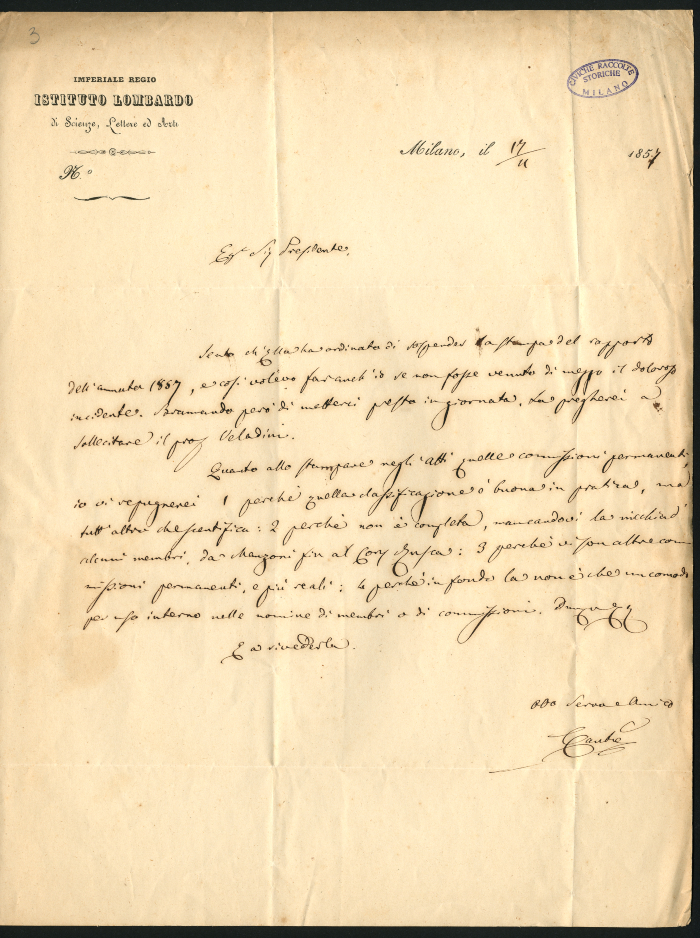 3
IMPERIALE REGIO
ISTITUTO LOMBARDO
di Scienze, Lettere ed Arti
N.°
CIVICHE RACCOLTE
STORICHE
MILANO
Milano, il 17/11 1857
Sig Presidente,
Sento ch'Ella ha ordinato di sospender la stampa del rapporto
dell'annata 1857, e così volevo far anch'io se non fosse venuto di mezzo il doloroso
incidente. Bramando però di metterci presto in giornata, La pregherei a
sollecitare il prof Veladini.
Quanto allo stampare negli atti quelle commissioni permanenti,
io vi repugnerei 1 perchè quella classificazione è buona in pratica, ma
tutt'altro che scentifica: 2 perchè non è completa, mancandovi la nicchia d'
alcuni membri, da Manzoni fin al Crusca: 3 perchè vi son altre com
missioni permanenti, e più reali: 4 perchè in fondo la non è che un comodo
per uso interno nelle nomine di membri o di commissioni.
E a rivederla.
Servo e Amico
Cantù